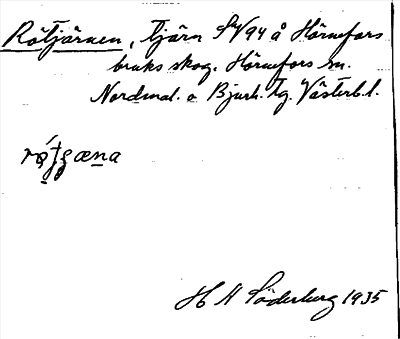 Rötjärnen, tjärn SV/94 å Hörnefors
bruks skog. Hörnefors sn.
Nordmal. o Bjurh. tg. Västerb. l.
H A Söderberg 1935